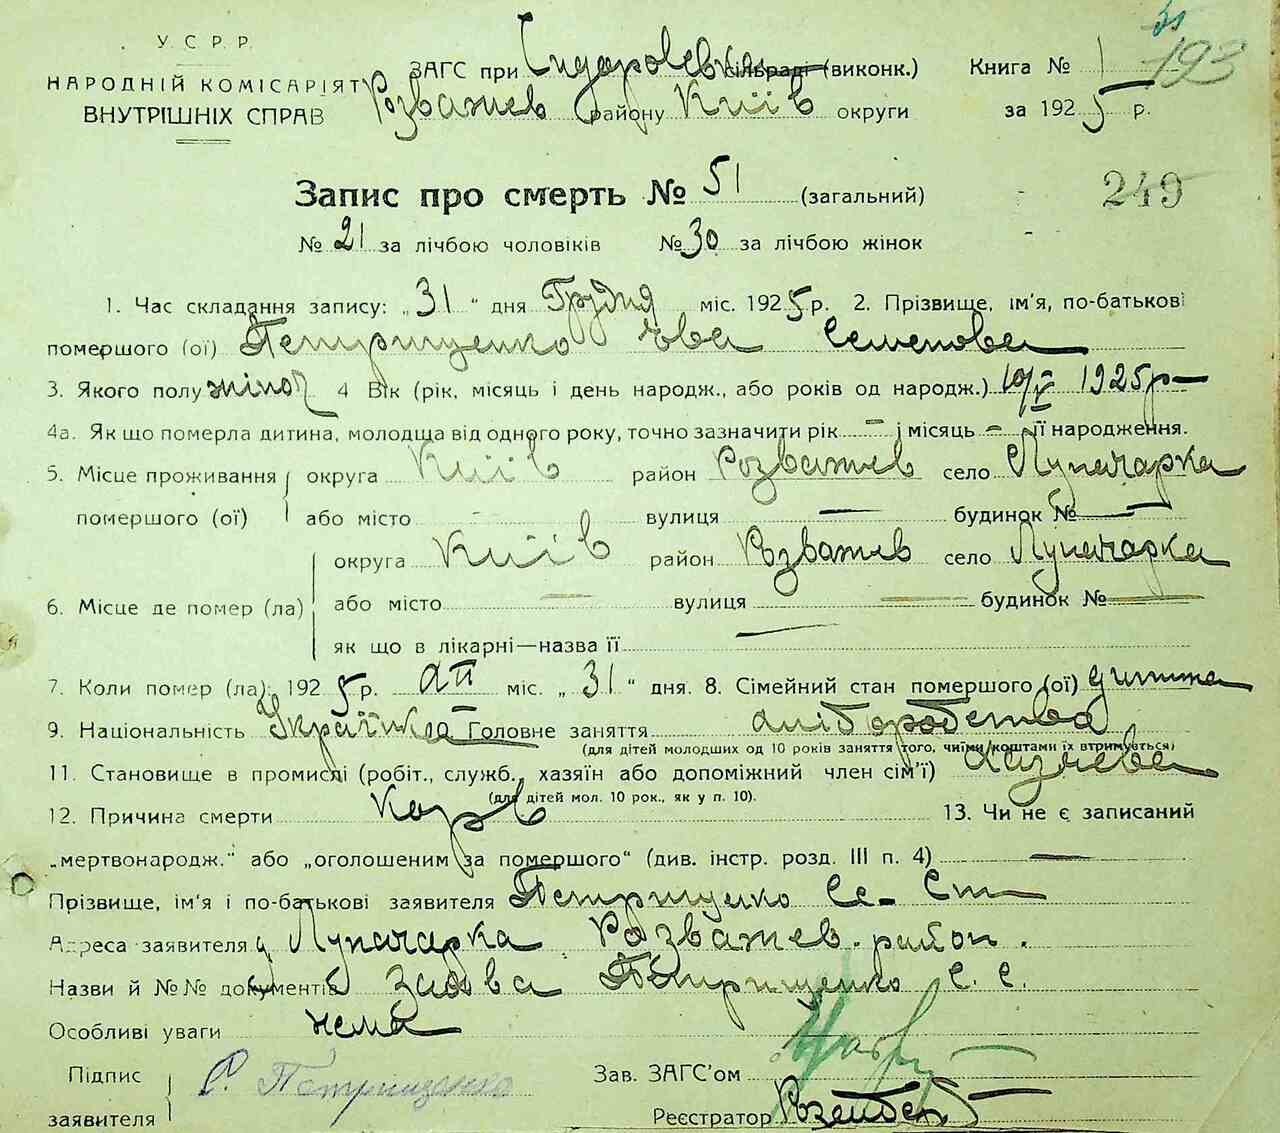 35
193
У. С. Р. Р.
НАРОДНІЙ КОМІСАРІЯТ
ВНУТРІШНІХ СПРАВ
ЗАГС при Сидоровськ сільраді (виконк.)
Розважев району Київ округи
Книга № 1
за 1925 р.
Запис про смерть № 51 (загальний)
249
№ 21 за лічбою чоловіків № 30 за лічбою жінок
1. Час складання запису: „31" дня Грудня міс. 1925 р. 2. Прізвище, ім'я, по-батькові
помершого (ої) Петрищенко Єва Семенова
3. Якого полу жіноч 4 Вік (рік, місяць і день народж., або років од народж.) 10/V 1925р
4а. Як що померла дитина, молодща від одного року, точно зазначити рік – і місяць – її народження.
5. Місце проживання помершого (ої) округа Київ район Розважев село Луначарка
або місто вулиця — будинок № —
6. Місце де помер (ла) округа Київ район Розважев село Луначарка
або місто — вулиця — будинок № —
як що в лікарні—назва її —
7. Коли помер (ла): 1925 р. міс. „31" дня. 8. Сімейний стан помершого (ої) дитина
9. Національність Українка Головне заняття хліборобства
(для дітей молодших од 10 років заняття того, чиїми коштами їх втримується)
11. Становище в промислі (робіт., служб., хазяїн або допоміжний член сім'ї) Хазяєва
(для дітей мол. 10 рок., як у п. 10).
12. Причина смерти Кор 13. Чи не є записаний
„мертвонародж." або „оголошеним за помершого" (див. інстр. розд. III п. 4) —
Прізвище, ім'я і по-батькові заявителя Петрищенко Се-
Адреса заявителя Луначарка Розважев. район.
Назви й №№ документів Заява Петрищенко С. С.
Особливі уваги нема
Підпис заявителя С. Петрищенко
Зав. ЗАГС'ом
Реєстратор